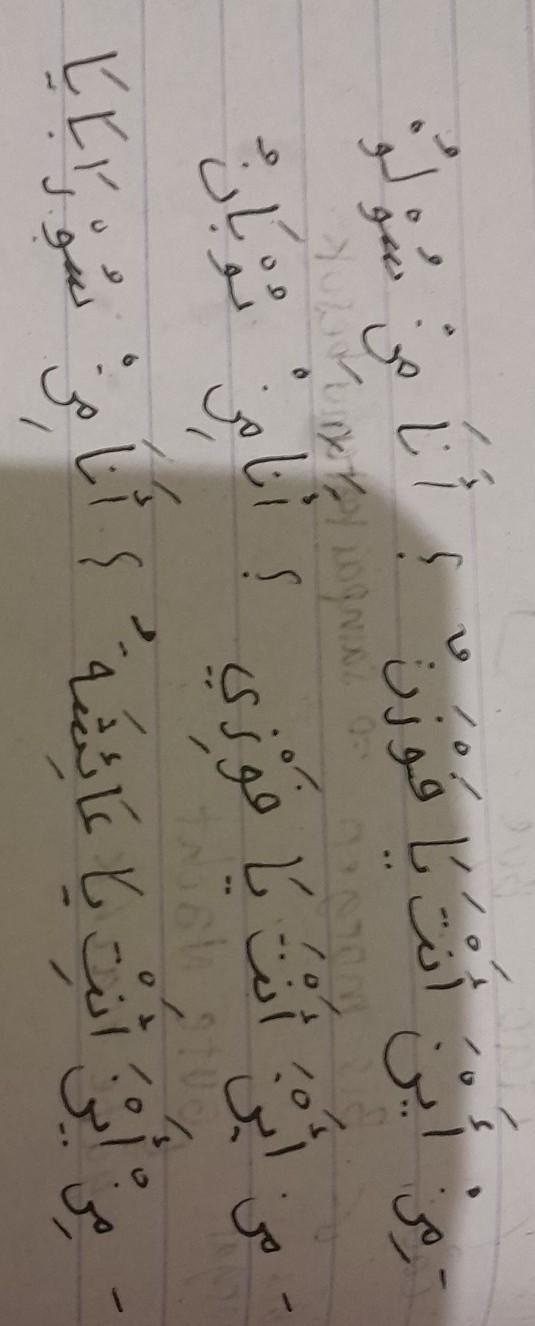 - مِنْ أَيْنَ أَنْتَ يَا فَوْزَنُ ؟ أَنَا مِنْ سُوْلُوْ
- مِن أَيْنَ أَنْتَ يَا فَوْزِي ؟ أنا مِنْ تُوْبَانْ
- مِنْ أَيْنَ أَنْتِ يَا عَائِشَةُ ؟ أَنَا مِنْ سُوْرَابَايَا